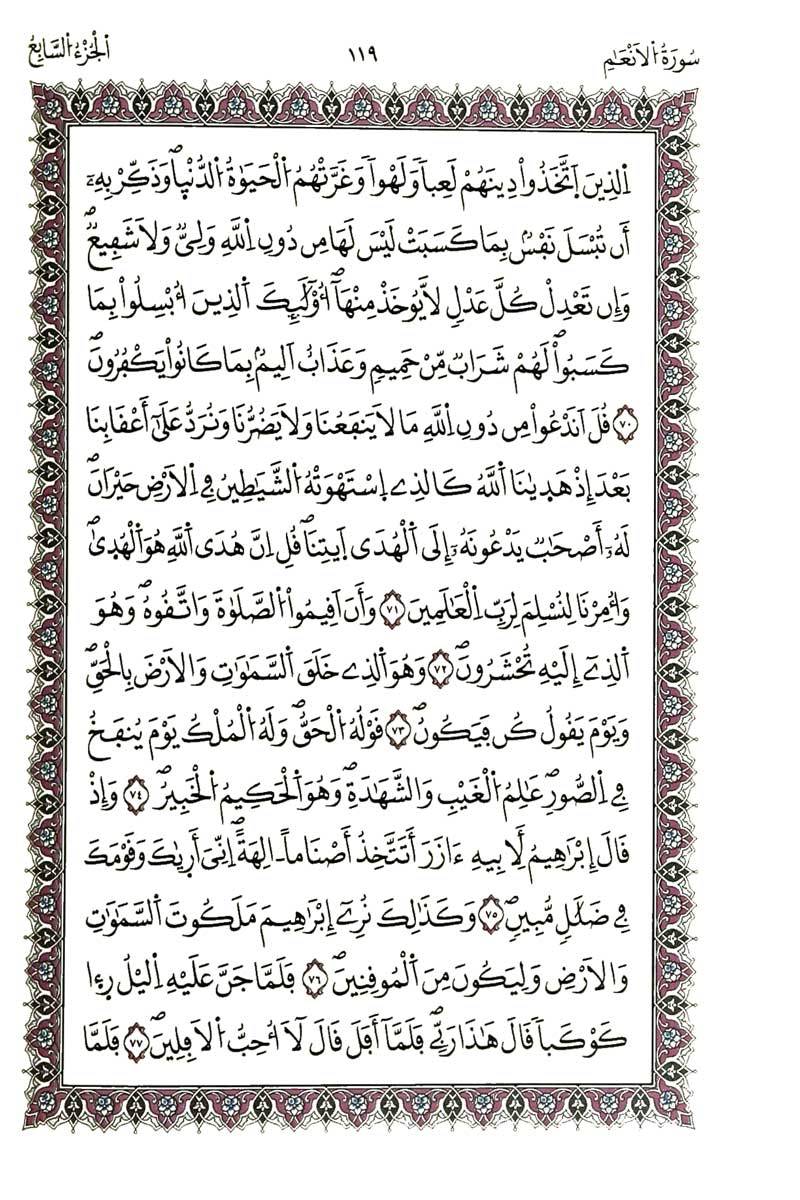 سُورَةُ اُ۬لَانْعَٰمِ ١١٩ اَ۬لْجُزْءُ اُ۬لسَّابِعُ
اَ۬لذِينَ اَ۪تَّخَذُواْ دِينَهُمْ لَعِباٗ وَلَهْواٗ وَغَرَّتْهُمُ اُ۬لْحَيَوٰةُ اُ۬لدُّنْي۪اۖ وَذَكِّرْ بِهِۦٓ
أَن تُبْسَلَ نَفْسُۢ بِمَا كَسَبَتْ لَيْسَ لَهَا مِن دُونِ اِ۬للَّهِ وَلِيّٞ وَلَا شَفِيعٞۖ
وَإِن تَعْدِلْ كُلَّ عَدْلٖ لَّا يُوخَذْ مِنْهَآۖ أُوْلَٰٓئِكَ اَ۬لذِينَ أُبْسِلُواْ بِمَا
كَسَبُواْۖ لَهُمْ شَرَابٞ مِّنْ حَمِيمٖ وَعَذَابٌ اَلِيمُۢ بِمَا كَانُواْ يَكْفُرُونَۖ
٧٠ قُلَ اَنَدْعُواْ مِن دُونِ اِ۬للَّهِ مَا لَا يَنفَعُنَا وَلَا يَضُرُّنَا وَنُرَدُّ عَلَىٰٓ أَعْقَابِنَا
بَعْدَ إِذْ هَد۪يٰنَا اَ۬للَّهُ كَالذِے اِ۪سْتَهْوَتْهُ اُ۬لشَّيَٰطِينُ فِے اِ۬لَارْضِ حَيْرَانَۖ
لَهُۥٓ أَصْحَٰبٞ يَدْعُونَهُۥٓ إِلَى اَ۬لْهُدَى اَ۪يتِنَاۖ قُلِ اِنَّ هُدَى اَ۬للَّهِ هُوَ اَ۬لْهُد۪ىٰۖ
وَأُمِرْنَا لِنُسْلِمَ لِرَبِّ اِ۬لْعَٰلَمِينَ ٧١ وَأَنَ اَقِيمُواْ اُ۬لصَّلَوٰةَ وَاتَّقُوهُۖ وَهُوَ
اَ۬لذِےٓ إِلَيْهِ تُحْشَرُونَۖ ٧٢ وَهُوَ اَ۬لذِے خَلَقَ اَ۬لسَّمَٰوَٰتِ وَالَارْضَ بِالْحَقِّۖ
وَيَوْمَ يَقُولُ كُن فَيَكُونُۖ ٧٣ قَوْلُهُ اُ۬لْحَقُّۖ وَلَهُ اُ۬لْمُلْكُ يَوْمَ يُنفَخُ
فِے اِ۬لصُّورِۖ عَٰلِمُ اُ۬لْغَيْبِ وَالشَّهَٰدَةِۖ وَهُوَ اَ۬لْحَكِيمُ اُ۬لْخَبِيرُۖ ٧٤ وَإِذْ
قَالَ إِبْرَٰهِيمُ لِأَبِيهِ ءَازَرَ أَتَتَّخِذُ أَصْنَاماً اٰلِهَةًۖ اِنِّيَ أَر۪يٰكَ وَقَوْمَكَ
فِے ضَلَٰلٖ مُّبِينٖۖ ٧٥ وَكَذَٰلِكَ نُرِےٓ إِبْرَٰهِيمَ مَلَكُوتَ اَ۬لسَّمَٰوَٰتِ
وَالَارْضِ وَلِيَكُونَ مِنَ اَ۬لْمُوقِنِينَۖ ٧٦ فَلَمَّا جَنَّ عَلَيْهِ اِ۬ليْلُ ر۪ء۪ا
كَوْكَباٗ قَالَ هَٰذَا رَبِّےۖ فَلَمَّآ أَفَلَ قَالَ لَآ أُحِبُّ اُ۬لَافِلِينَۖ ٧٧ فَلَمَّا